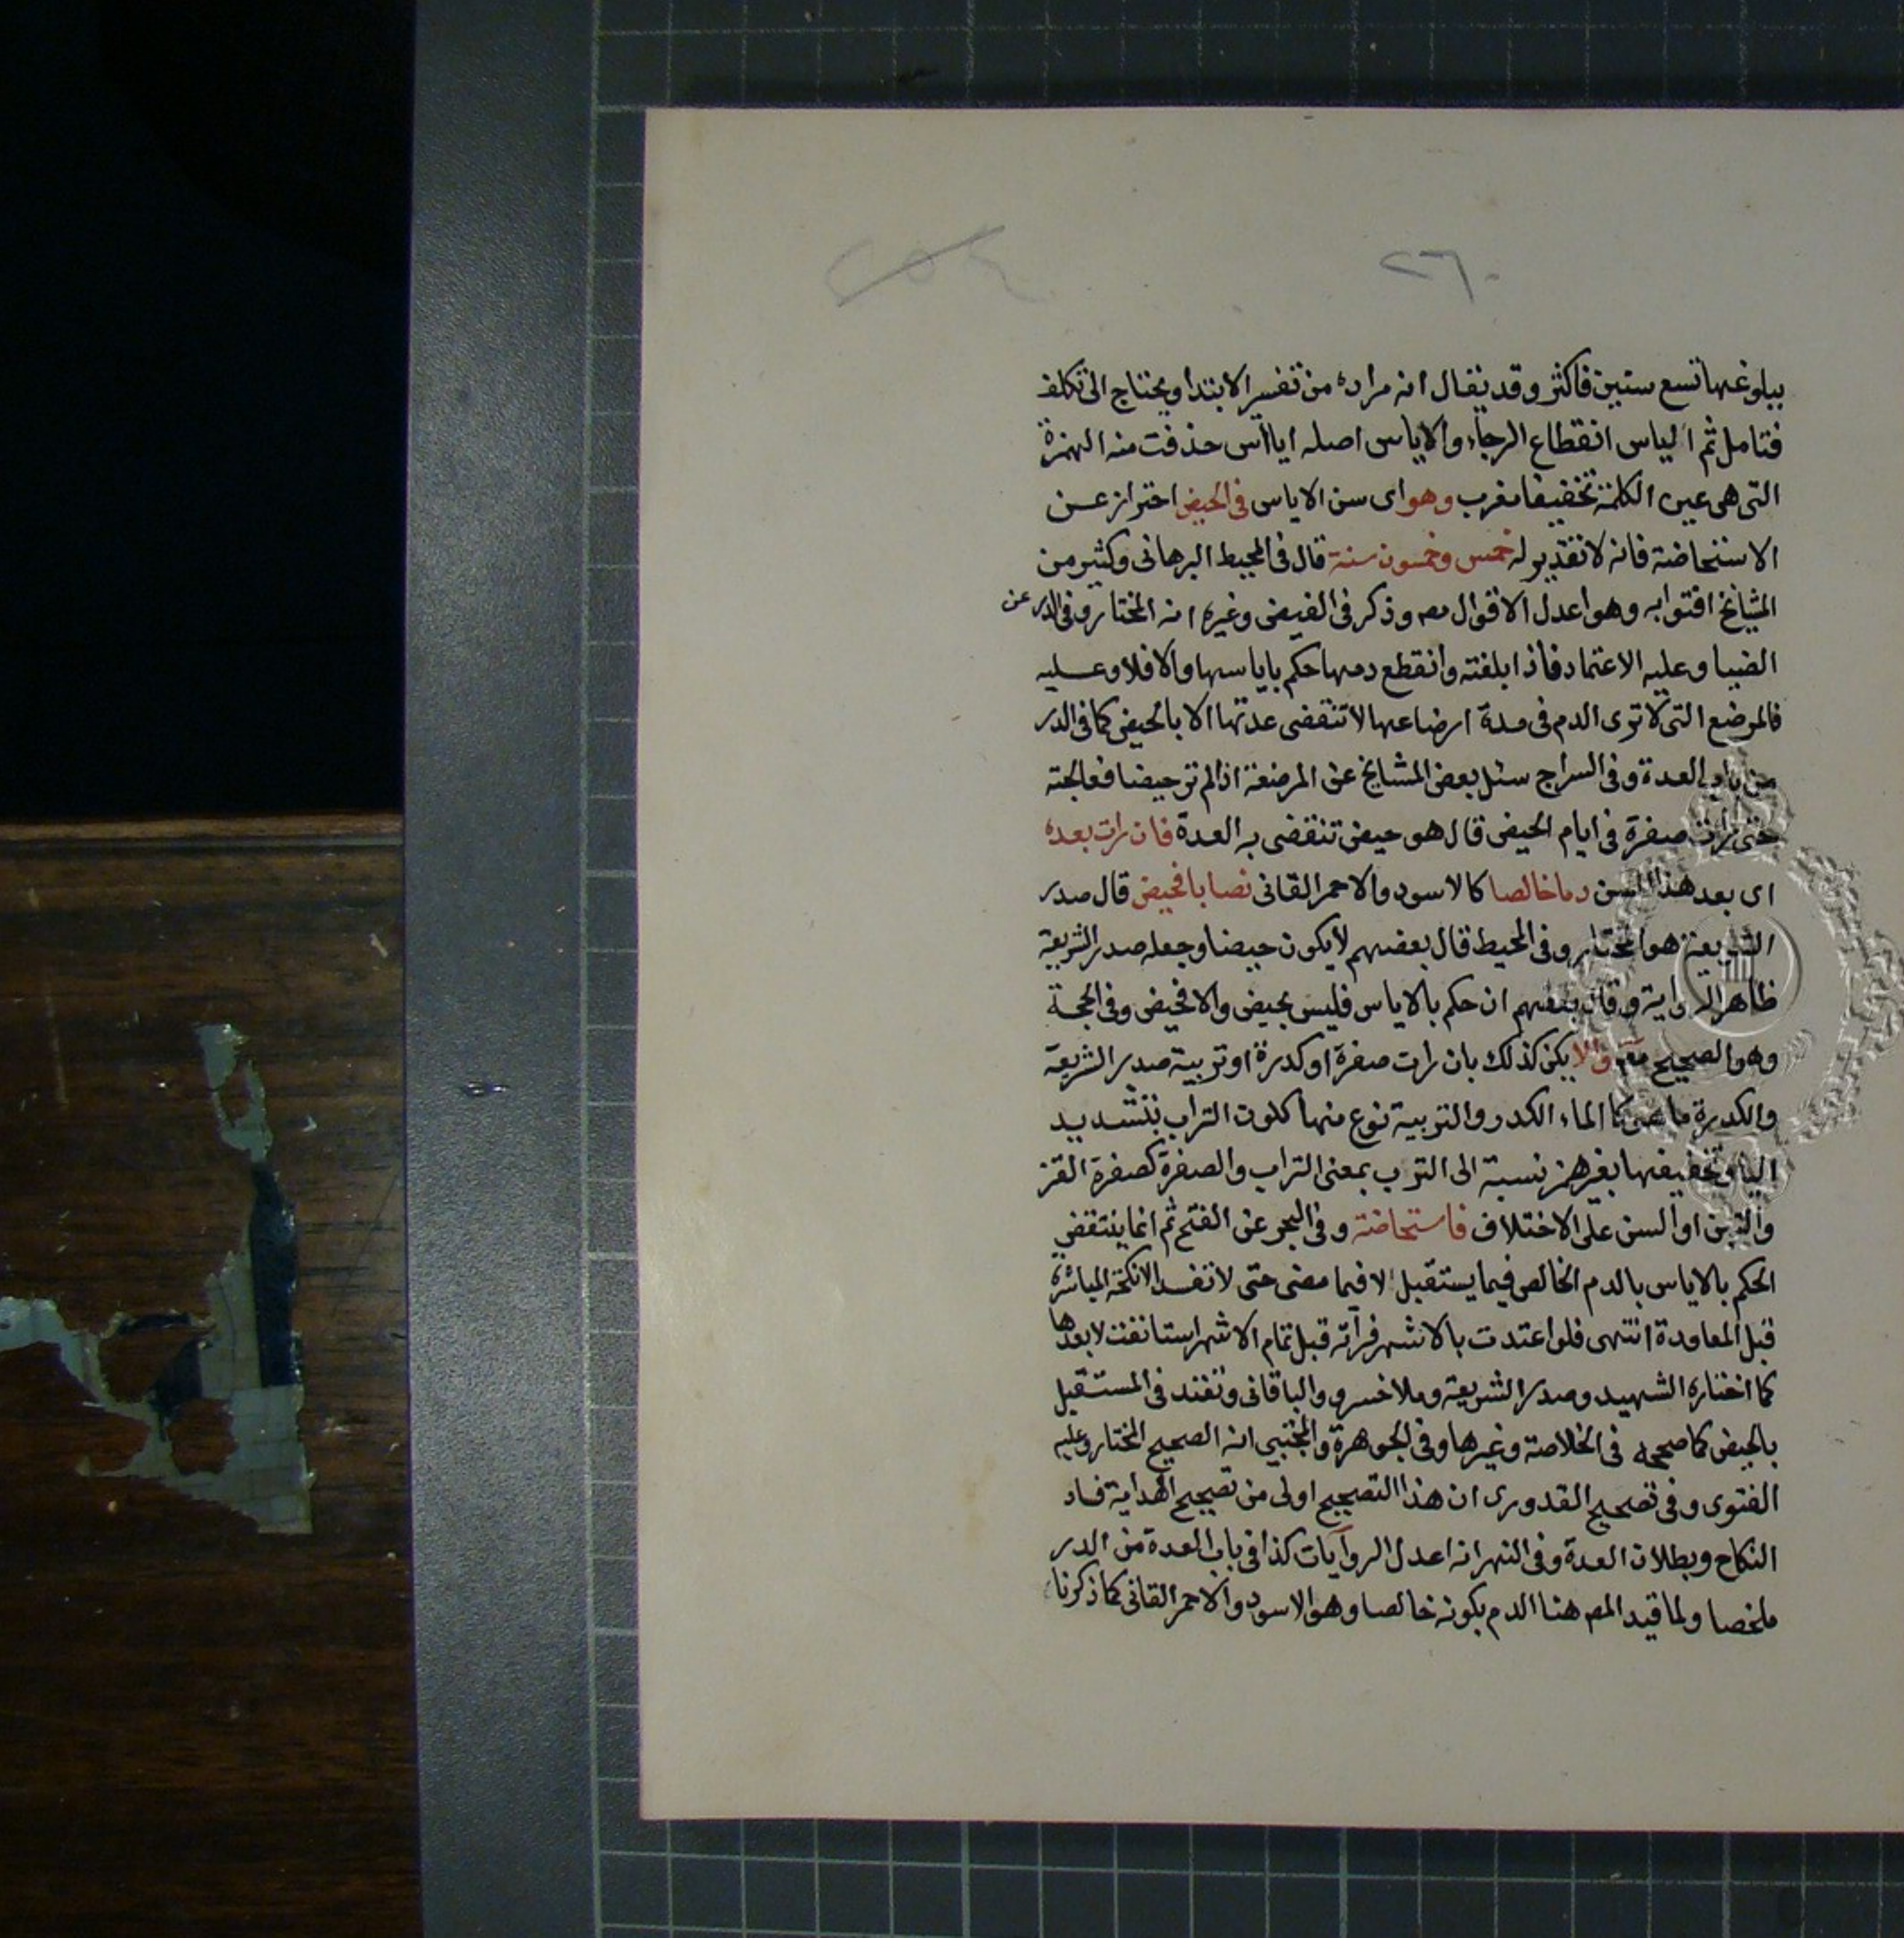 ٢٦٠
٢٥٤
ببلوغها تسع سنين فاكثر وقد يقال انه مراده من تفسير الابتدا ويحتاج الى تكلف
فتامل ثم الياس انقطاع الرجاء والاياس اصله ايااس حذفت منه الهمزة
التى هى عين الكلمة تخفيفا مغرب وهو اى سن الاياس فى الحيض احتراز عن
الاستحاضة فانه لا تقدير له خمس وخمسون سنة قال فى المحيط البرهانى وكثير من
المشايخ افتوا به وهو اعدل الاقوال مه وذكر فى الفيض وغيره انه المختار وفى الدر عن
الضيا وعليه الاعتماد فاذا بلغته وانقطع دمها حكم باياسها والا فلا وعليه
فالمرضع التى لا ترى الدم فى مدة ارضاعها لا تنقضى عدتها الا بالحيض كما فى الدر
من باب العدة وفى السراج سئل بعض المشايخ عن المرضعة اذا لم تر حيضا فعالجته
حتى رات صفرة فى ايام الحيض قال هو حيض تنقضى به العدة فان رات بعده
اى بعد هذا السن دما خالصا كالاسود والاحمر القانى نصابا فحيض قال صدر
الشريعة هو المختار وفى المحيط قال بعضهم لا يكون حيضا وجعله صدر الشريعة
ظاهر الرواية وقال بعضهم ان حكم بالاياس فليس بحيض والا فحيض وفى الحجة
وهو الصحيح والا يكن كذلك بان رات صفرة او كدرة او تربية صدر الشريعة
والكدرة ما هى كالماء الكدر والتربية نوع منها كلون التراب بتشديد
اليا وتخفيفها بغير همز نسبة الى الترب بمعنى التراب والصفرة كصفرة القز
والتبن او السن على الاختلاف فاستحاضة وفى البحر عن الفتح ثم انما ينتقض
الحكم بالاياس بالدم الخالص فيما يستقبل لا فيما مضى حتى لا تفسد الانكحة المباشرة
قبل المعاودة انتهى فلو اعتدت بالاشهر فراته قبل تمام الاشهر استانفت لا بعدها
كما اختاره الشهيد وصدر الشريعة وملا خسرو والباقانى وتعتد فى المستقبل
بالحيض كما صححه فى الخلاصة وغيرها وفى الجوهرة والمجتبى انه الصحيح المختار وعليه
الفتوى وفى تصحيح القدورى ان هذا التصحيح اولى من تصحيح الهداية فساد
النكاح وبطلان العدة وفى النهر انه اعدل الروايات كذا فى باب العدة من الدر
ملخصا ولما قيد المص هنا الدم بكونه خالصا وهو الاسود والاحمر القانى كما ذكرنا